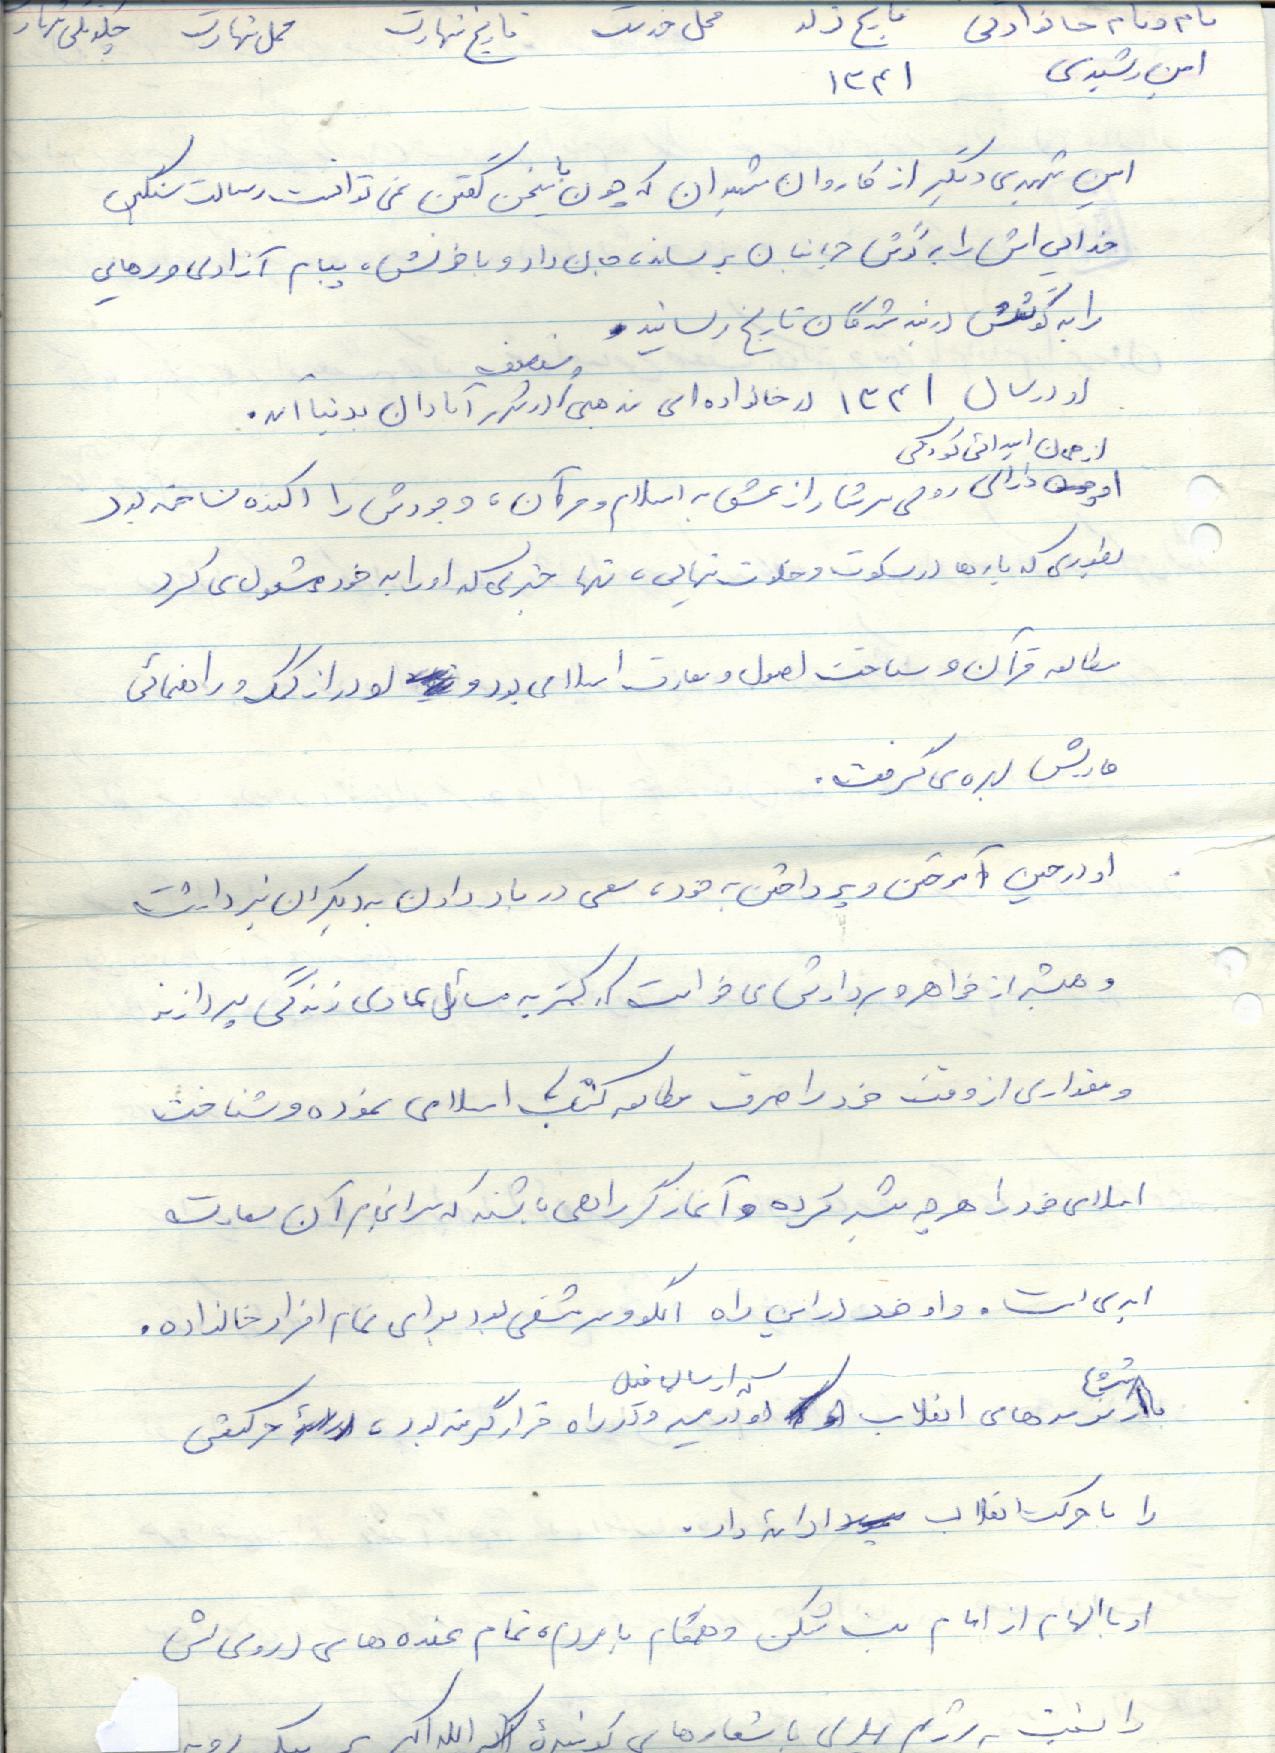 نام و نام خانوادگی تاریخ تولد محل خدمت تاریخ شهادت محل شهادت چگونگی شهادت
امین رشیدی ۱۳۴۱
امین شهیدی دیگر از کاروان شهیدان که چون با سخن گفتن نمی توانست رسالت سنگین
خدایی اش را به گوش جهانیان برساند، جان داد و با خونش، پیام آزادی و رهایی
را به گوش دربند شدگان تاریخ رسانید.
او در سال ۱۳۴۱ در خانواده ای مذهبی و مستضعف در شهر آبادان بدنیا آمد.
از همان ابتدای کودکی
دارای روحی سرشار از عشق به اسلام و قرآن، وجودش را آکنده ساخته بود
بطوری که بارها در سکوت و خلوت تنهایی، تنها چیزی که او را به خود مشغول می کرد
مطالعه قرآن و شناخت اصول و معارف اسلامی بود و او از کمک و راهنمائی
هایش بهره می گرفت.
او در حین آموختن و پرداختن به خود، سعی در یاد دادن به دیگران نیز داشت
و همیشه از خواهر و برادرش می خواست که کمتر به مسائل مادی زندگی بپردازند
و مقداری از وقت خود را صرف مطالعه کتابهای اسلامی نموده و شناخت
اسلامی خود را هر چه بیشتر کرده و آغازگر راهی باشند که سرانجام آن سعادت
ابدی است. و او خود در این راه الگو و سرمشقی بود برای تمام افراد خانواده.
با شروع های انقلاب او که از سالها قبل در مسیر و در راه قرار گرفته بود، حرکتش
را با حرکت انقلاب ادامه داد.
او با الهام از امام بت شکن و همگام با مردم، تمام عقده های درونی اش
را نسبت به رژیم پهلوی با شعارهای کوبنده الله اکبر